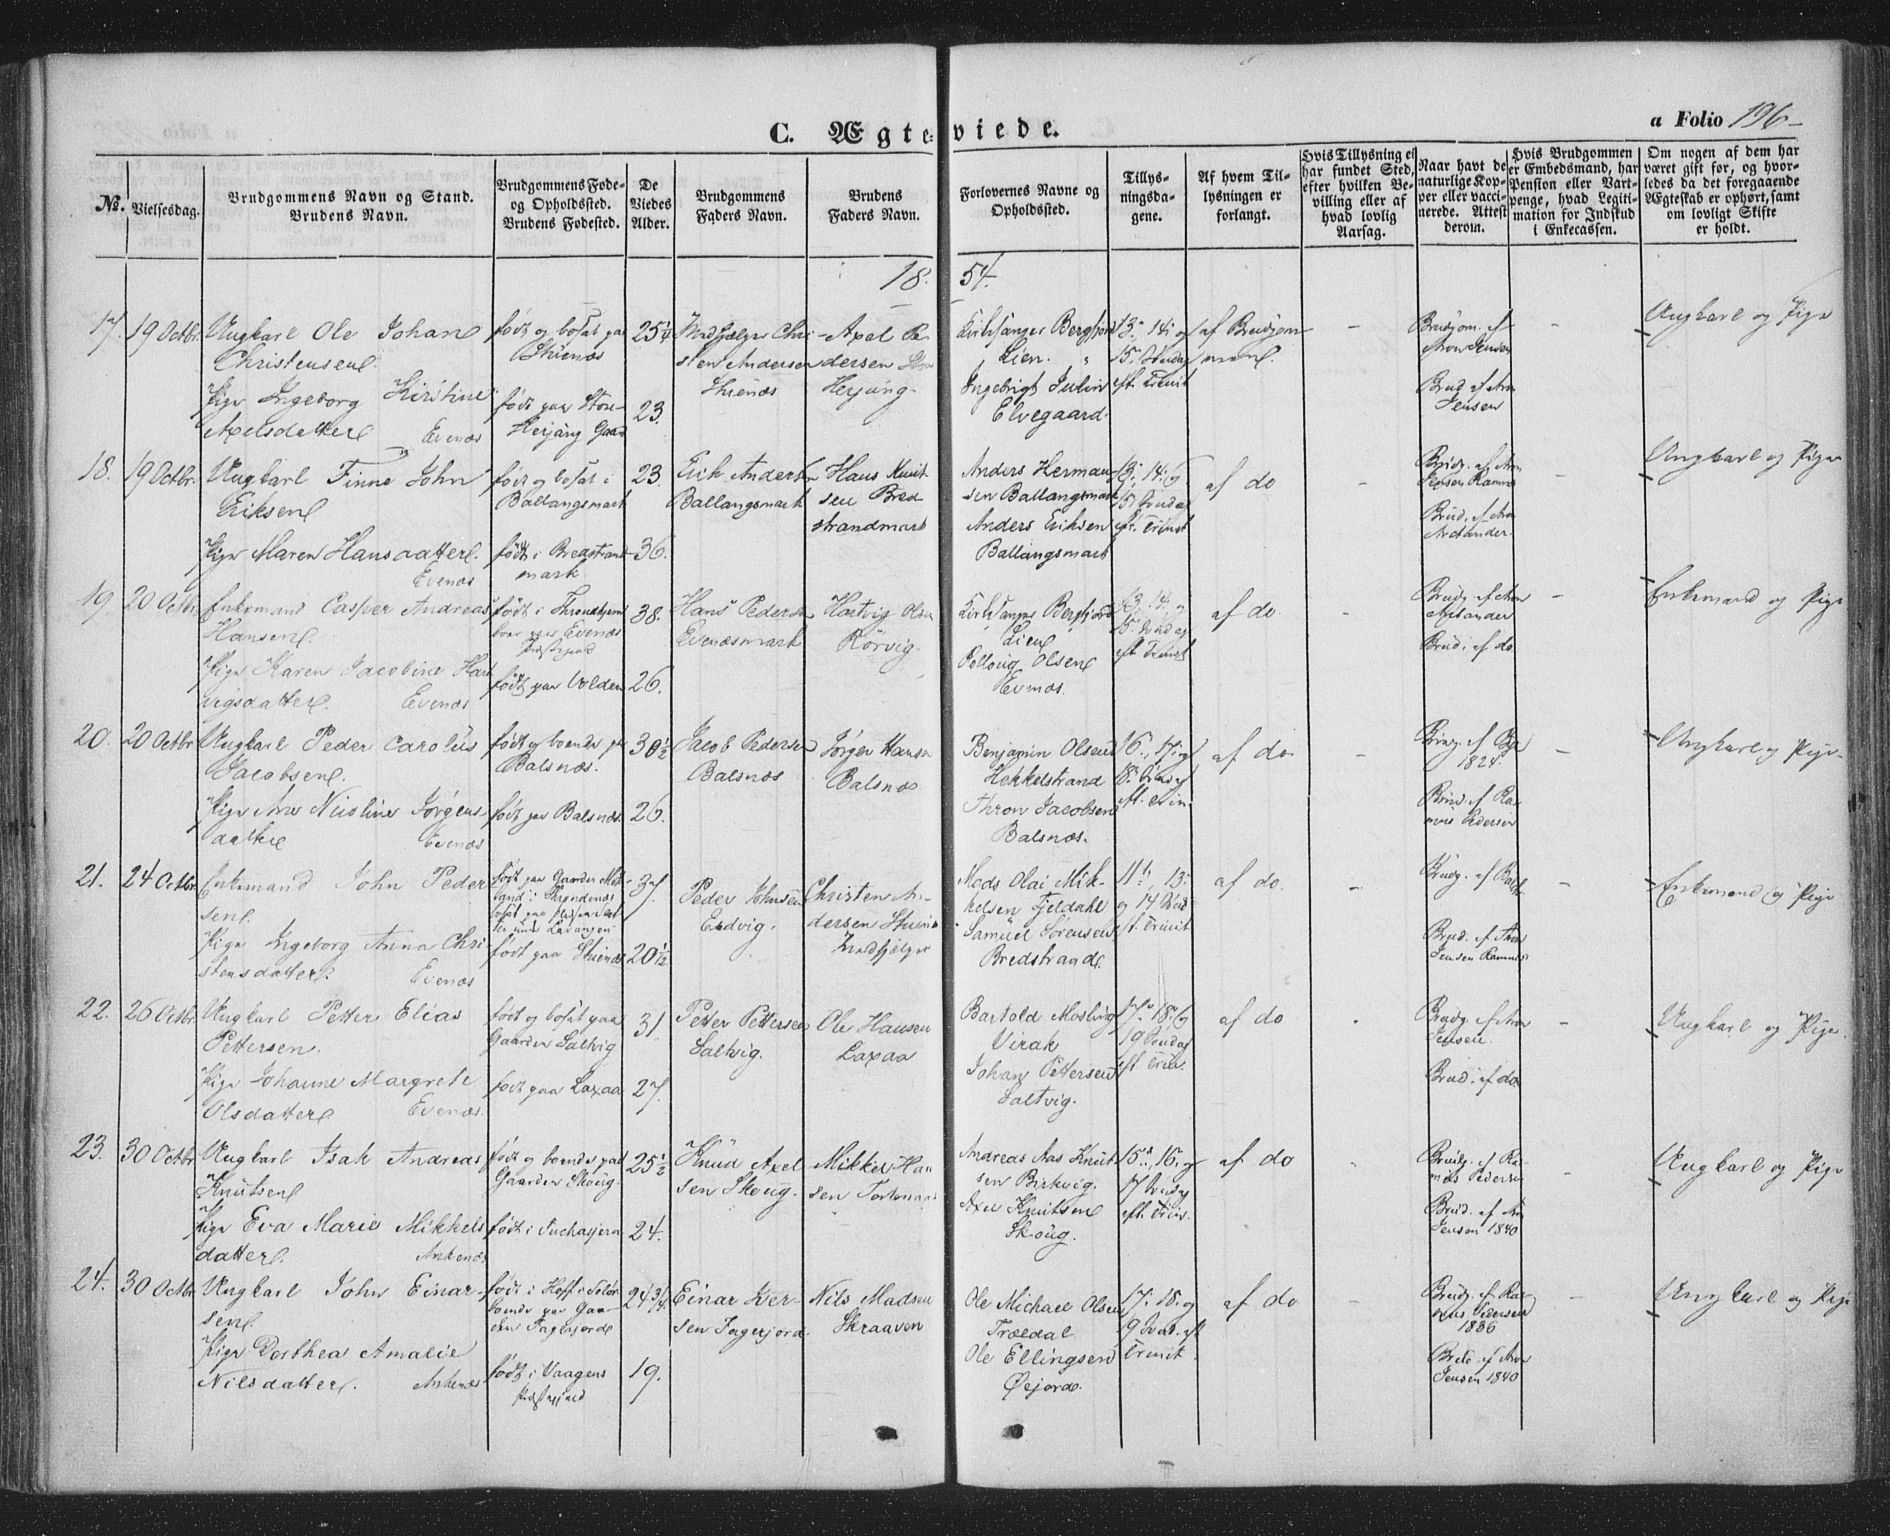 C. Ægteviede.
a Folio 196
No.
Vielsesdag.
Brudgommens Navn og Stand.
Brudens Navn.
Brudgommens Føde-
og Opholdssted.
Brudens Fødested.
De
Viedes
Alder.
Brudgommens
Faders Navn.
Brudens
Faders Navn.
Forlovernes Navne og
Opholdssted.
Tillys-
ningsda-
gene.
Af hvem Til-
lysningen er
forlangt.
Hvis Tillysning ei
har fundet Sted,
efter hvilken Be-
villing eller af
hvad lovlig
Aarsag.
Naar havt de
naturlige Kop-
per eller vacci-
nerede. Attest
derom.
Hvis Brudgommen
er Embedsmand, har
Pension eller Vart-
penge, hvad Legiti-
mation for Indskud
i Enkecassen.
Om nogen af dem har
været gift før, og hvor-
ledes da det foregaaende
Ægteskab er ophørt, samt
om lovligt Skifte
er holdt.
1854.
17. 19 Octbr.
Ungkarl Ole Johan
Christensen.
Pige Ingeborg Kirstine
Axelsdatter Evenæs
født og bosat paa
Skienæs
født paa Store-
Herjang Gaard
25¼
23.
Indfjælger Chri-
sten Andersen
Skienæs
Axel Pe-
dersen
Herjang
Kirkesanger Bergfjord
Lien.
Ingebrigt Julin
Elvegaard.
13. 14. og
15. Søndag
eft. Trinit
af Brudgom
men.
Brudgom. af
Aron Jensen
Brud af Aron
Jensen
Ungkarl og Pige
18. 19 Octbr.
Ungkarl Finne John
Eriksen
Pige Maren Hansdatter.
Evenæs
født og bosat i
Ballangsmark
født i Bredstrand
mark
23.
36.
Erik Andersen
Ballangsmark
Hans Knut
sen Bred
strandmark
Anders Herman
sen Ballangsmark
Anders Eriksen
Ballangsmark
13. 14. og
15 Søndag
eft. Trinit
af do
Brudg. af Aron
Jensen Ramnæs
Brud. af Aron
Arctander.
Ungkarl og Pige
19. 20 Octbr.
Enkemand Casper Andreas
Hansen.
Pige Karen Jacobine Hart
vigsdatter. Evenæs
født i Throndhjem
boer paa Evenæs
Præstegaard
født paa Volden
38.
26.
Hans Peders
Evenæsmark
Hartvig Olsen
Rörvig.
Kirkesanger Bergfjord
Lien
Olsen
Evenæs.
13. 14. og
15. Søndag
eft Trinit
af do
Brudg. af Aron
Arctander
Brud. af do
Enkemand og Pige
20. 20 Octbr
Ungkarl Peder Carolus
Jacobsen.
Pige Ane Nicoline Jørgens
datter Evenæs
født og boende paa
Balsnæs.
født paa Balsnæs.
30½
26.
Jacob Pedersen
Balsnæs
Jørgen Hansen
Balsnæs
Benjamin Olsen
Hekkelstrand
Thron Jacobsen
Balsnæs.
16. 17. og
18. Søndag
eft. Trin.
af do.
1824.
Brud. af Ras-
mus Pedersen
Ungkarl og Pige
21. 24 Octbr.
Enkemand John Peder
sen.
Pige Ingeborg Anna Chri
stensdatter. Evenæs
født paa Skienæs
37.
20½
Peder Johnsen
Christen An-
dersen Skienæs
Indfjælger
Mads Olai Mik-
kelsen Fjeldahl
Samuel Sørensen
Bredstrand.
11te, 13.
og 14 Sønd
eft. Trinit
af do.
Brud. af Aron
Jensen Ramnæs
Enkemand og Pige
22. 26 Octbr.
Ungkarl Petter Elias
Pettersen.
Pige Johanne Margrete
Olsdatter Evenæs.
født og bosat paa
Gaarden Saltvig
født paa Laxaa
31.
27.
Petter Pettersen
Saltvig.
Ole Hansen
Laxaa
Bartold Mosling
Virak
Johan Pettersen
Saltvig.
17. 18. og
19 Søndag
eft. Trin.
af do
Brudg. af Aron
Jensen.
Brud. af do.
Ungkarl og Pige.
23. 30 Octbr.
Ungkarl Isak Andreas
Knutsen
Pige Eva Marie Mikkels
datter. Ankenæs
født og boende paa
Gaarden Skoug.
25½
24.
Knud Axel
sen Skoug.
Mikkel Han
sen
Andreas Aas Knut
sen Birkvig.
Axel Knutsen
Skoug.
15de, 16. og
17 Søndag
eft. Trin.
af do
Brudg. af Ras-
mus Pedersen
Brud. af Aron
Jensen 1840
Ungkarl og Pige
24. 30 Octbr
Ungkarl John Einar-
sen.
Pige Dorthea Amalie
Nilsdatter. Ankenæs
født i Hoff i Solør
boende paa Gaar-
den Fagerjord
født i Vaagens
Præstegjeld
24¾
19.
Einar Iver-
sen Fagerjord
Nils Madsen
Skraaven
Ole Michael Olsen
Trældal
Ole Ellingsen
Øejord.
17. 18. og
19 Sønd. eft
Trinit.
af do
Brudg. af Ras-
mus Pedersen
1836
Brud af Aron
Jensen 1840
Ungkarl og Pige